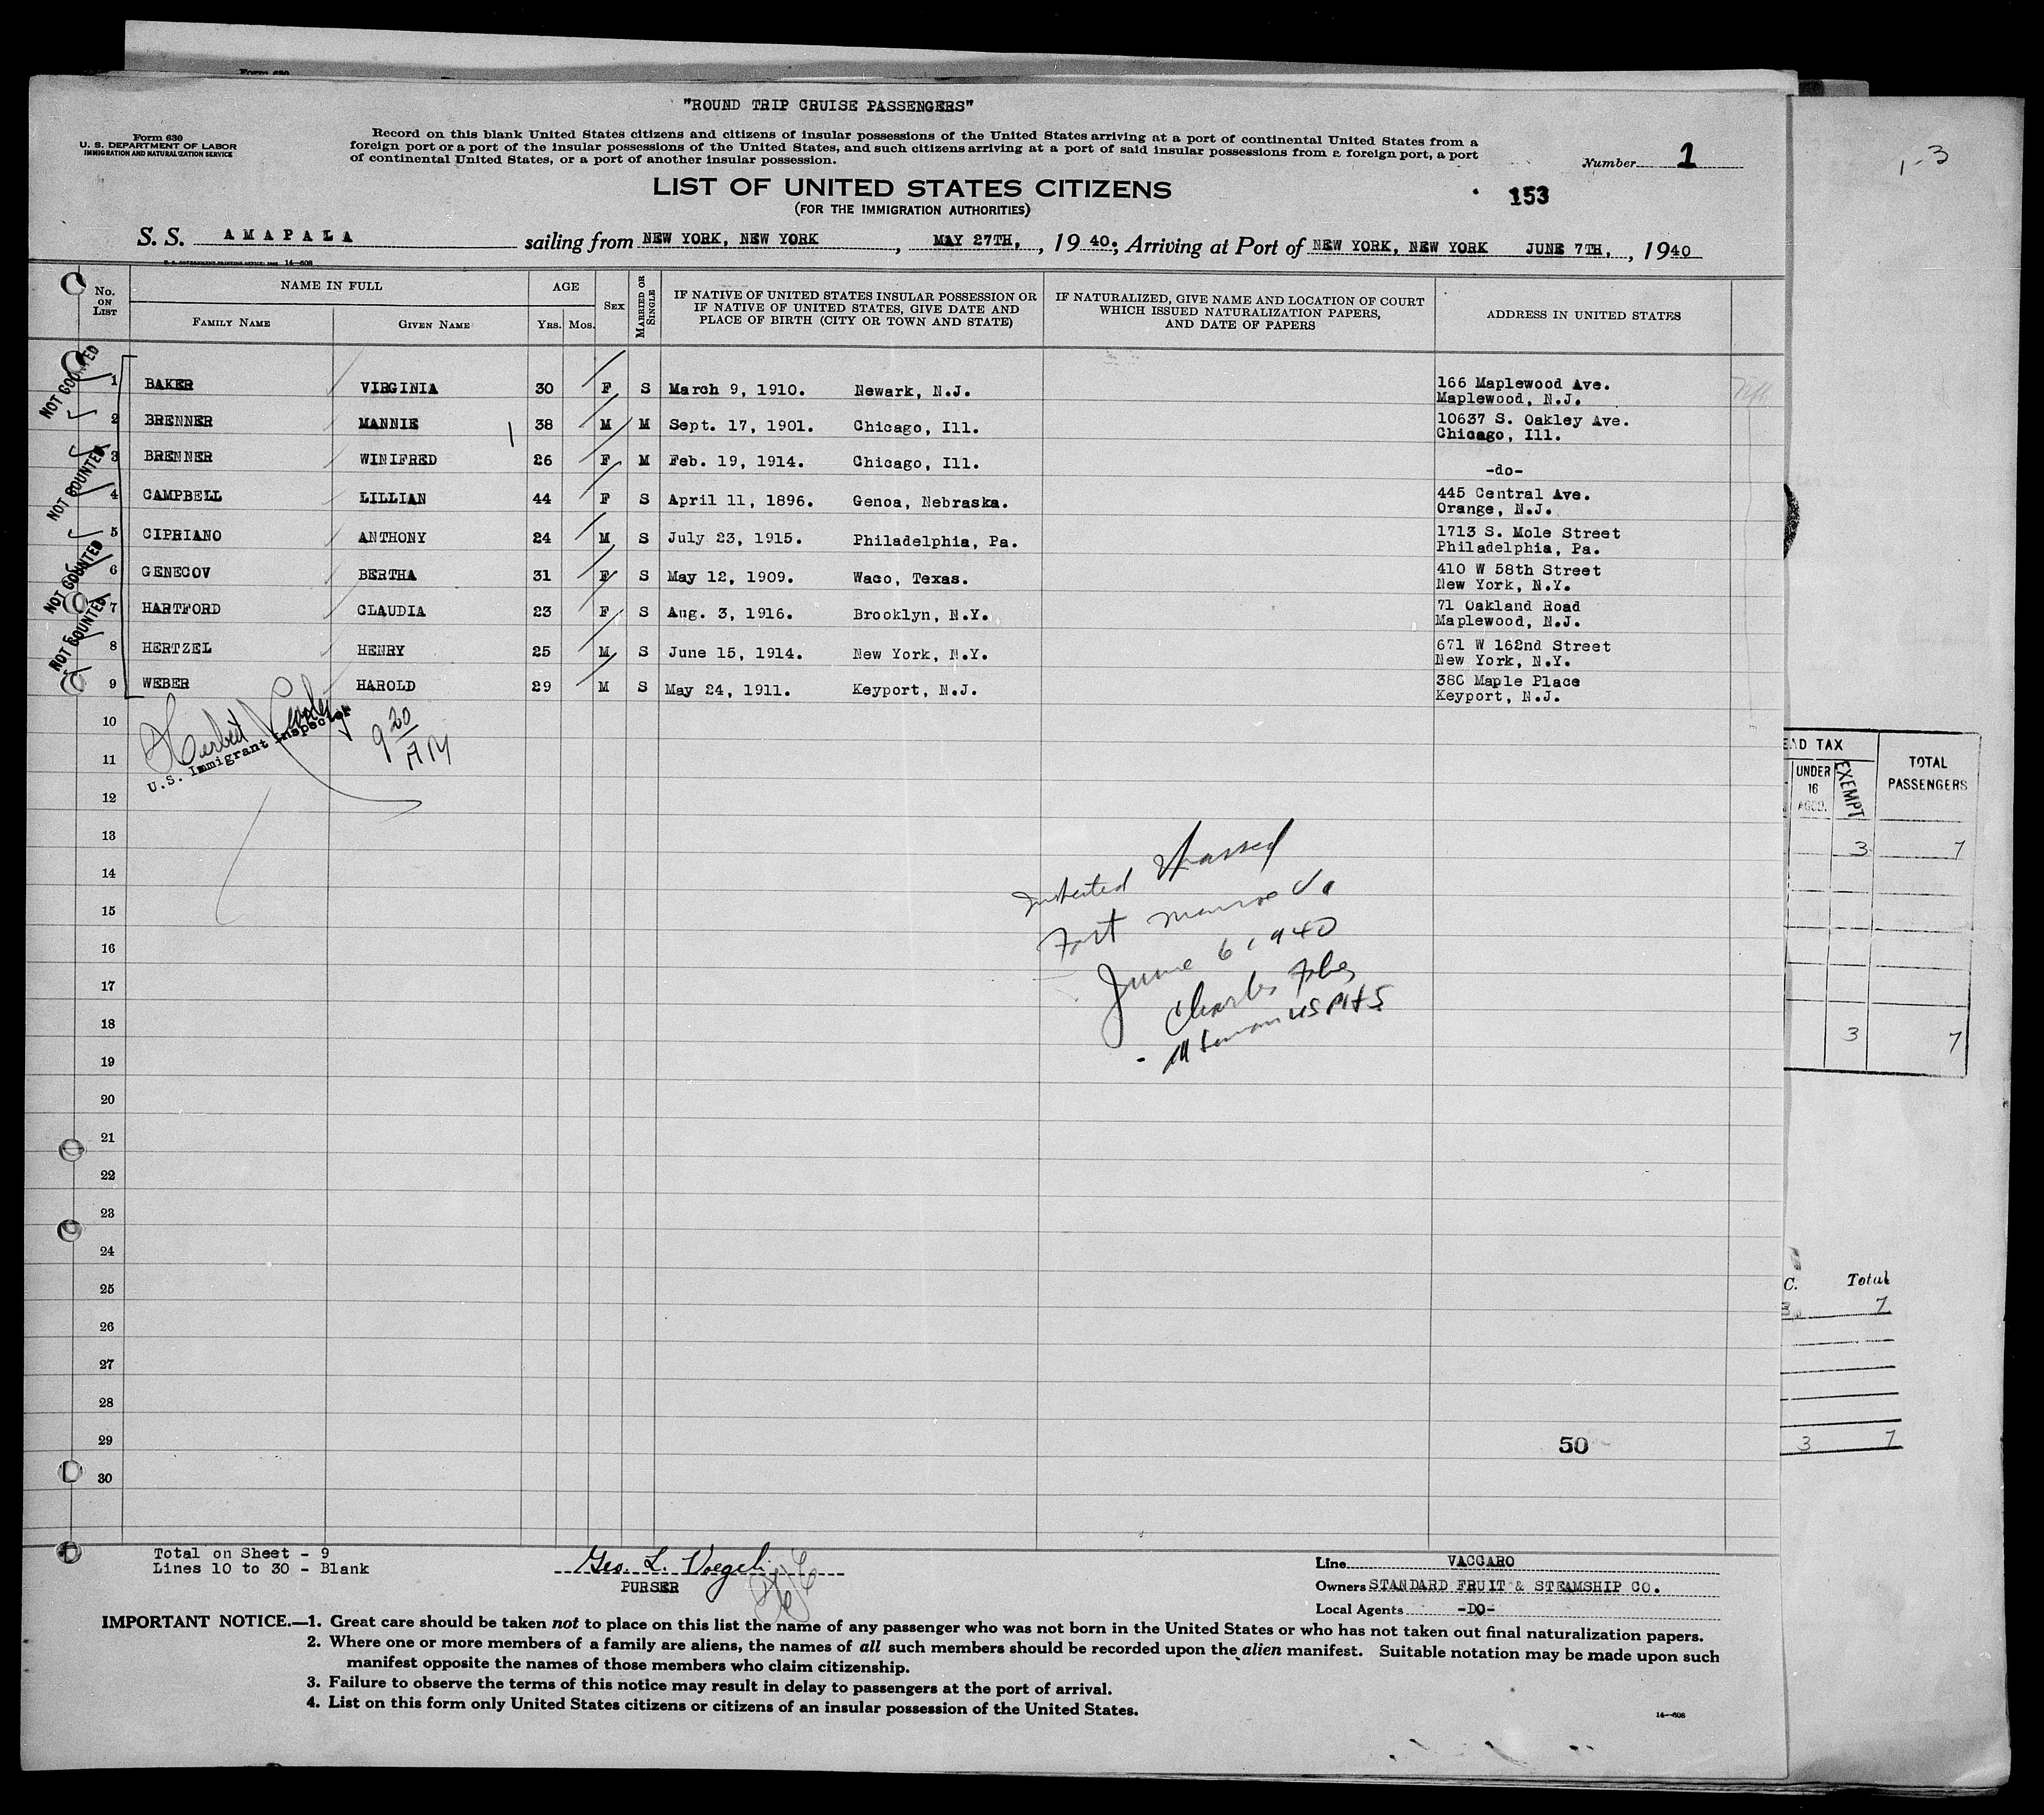 Form 630
"ROUND TRIP CRUISE PASSENGERS"
Form 630
U. S. DEPARTMENT OF LABOR
IMMIGRATION AND NATURALIZATION SERVICE
Record on this blank United States citizens and citizens of insular possessions of the United States arriving at a port of continental United States from a
foreign port or a port of the insular possessions of the United States, and such citizens arriving at a port of said insular possessions from a foreign port, a port
of continental United States, or a port of another insular possession.
Number 1
1-3
LIST OF UNITED STATES CITIZENS
153
(FOR THE IMMIGRATION AUTHORITIES)
S. S. AMAPALA sailing from NEW YORK, NEW YORK, MAY 27TH, , 19 40; Arriving at Port of NEW YORK, NEW YORK JUNE 7TH, , 1940
14—608
No. ON LIST NAME IN FULL AGE SEX MARRIED OR SINGLE IF NATIVE OF UNITED STATES INSULAR POSSESSION OR IF NATURALIZED, GIVE NAME AND LOCATION OF COURT ADDRESS IN UNITED STATES
IF NATIVE OF UNITED STATES, GIVE DATE AND WHICH ISSUED NATURALIZATION PAPERS,
FAMILY NAME GIVEN NAME YRS. MOS. PLACE OF BIRTH (CITY OR TOWN AND STATE) AND DATE OF PAPERS
NOT COUNTED
1 BAKER VIRGINIA 30 F S March 9, 1910. Newark, N.J. 166 Maplewood Ave.
Maplewood, N.J.
2 BRENNER MANNIE 38 M M Sept. 17, 1901. Chicago, Ill. 10637 S. Oakley Ave.
Chicago, Ill.
NOT COUNTED
3 BRENNER WINIFRED 26 F M Feb. 19, 1914. Chicago, Ill. -do-
4 CAMPBELL LILLIAN 44 F S April 11, 1896. Genoa, Nebraska. 445 Central Ave.
Orange, N.J.
5 CIPRIANO ANTHONY 24 M S July 23, 1915. Philadelphia, Pa. 1713 S. Mole Street
Philadelphia, Pa.
NOT COUNTED
6 GENECOV BERTHA 31 F S May 12, 1909. Waco, Texas. 410 W 58th Street
New York, N.Y.
7 HARTFORD CLAUDIA 23 F S Aug. 3, 1916. Brooklyn, N.Y. 71 Oakland Road
Maplewood, N.J.
NOT COUNTED
8 HERTZEL HENRY 25 M S June 15, 1914. New York, N.Y. 671 W 162nd Street
New York, N.Y.
9 WEBER HAROLD 29 M S May 24, 1911. Keyport, N.J. 380 Maple Place
Keyport, N.J.
10
Herbert
U.S. Immigrant Inspector
9 20/AM
11
12
13
14
15
16
17
18
19
20
21
22
23
24
25
26
27
28
29
30
passed
Fort Monroe Va
June 6 1940
Charles
USPHS
50
HEAD TAX TOTAL PASSENGERS
UNDER 16 EXEMPT
3 7
3 7
C. Total
3 7
3 7
Total on Sheet - 9
Lines 10 to 30 - Blank
Geo. L. Voegeli
PURSER
Line VACCARO
Owners STANDARD FRUIT & STEAMSHIP CO.
Local Agents -DO-
IMPORTANT NOTICE.—1. Great care should be taken not to place on this list the name of any passenger who was not born in the United States or who has not taken out final naturalization papers.
2. Where one or more members of a family are aliens, the names of all such members should be recorded upon the alien manifest. Suitable notation may be made upon such
manifest opposite the names of those members who claim citizenship.
3. Failure to observe the terms of this notice may result in delay to passengers at the port of arrival.
4. List on this form only United States citizens or citizens of an insular possession of the United States.
14—608